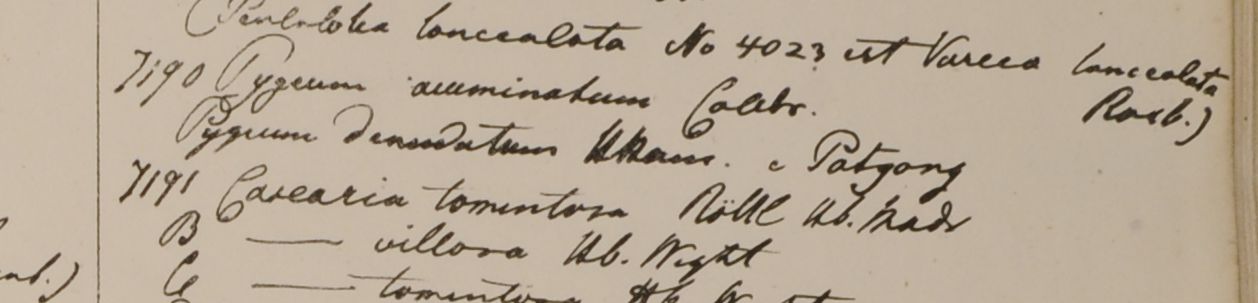 (Pentaloba lanceolata No 4023 est Vareca lanceolata
Roxb.)
7190 Pygeum acuminatum Colebr.
Pygeum denudatum HHam. e Patgong
7191 Casearia tomentosa Röttl Hb. Madr
B —— villosa Hb. Wight
C —— tomentosa Hb. Wight